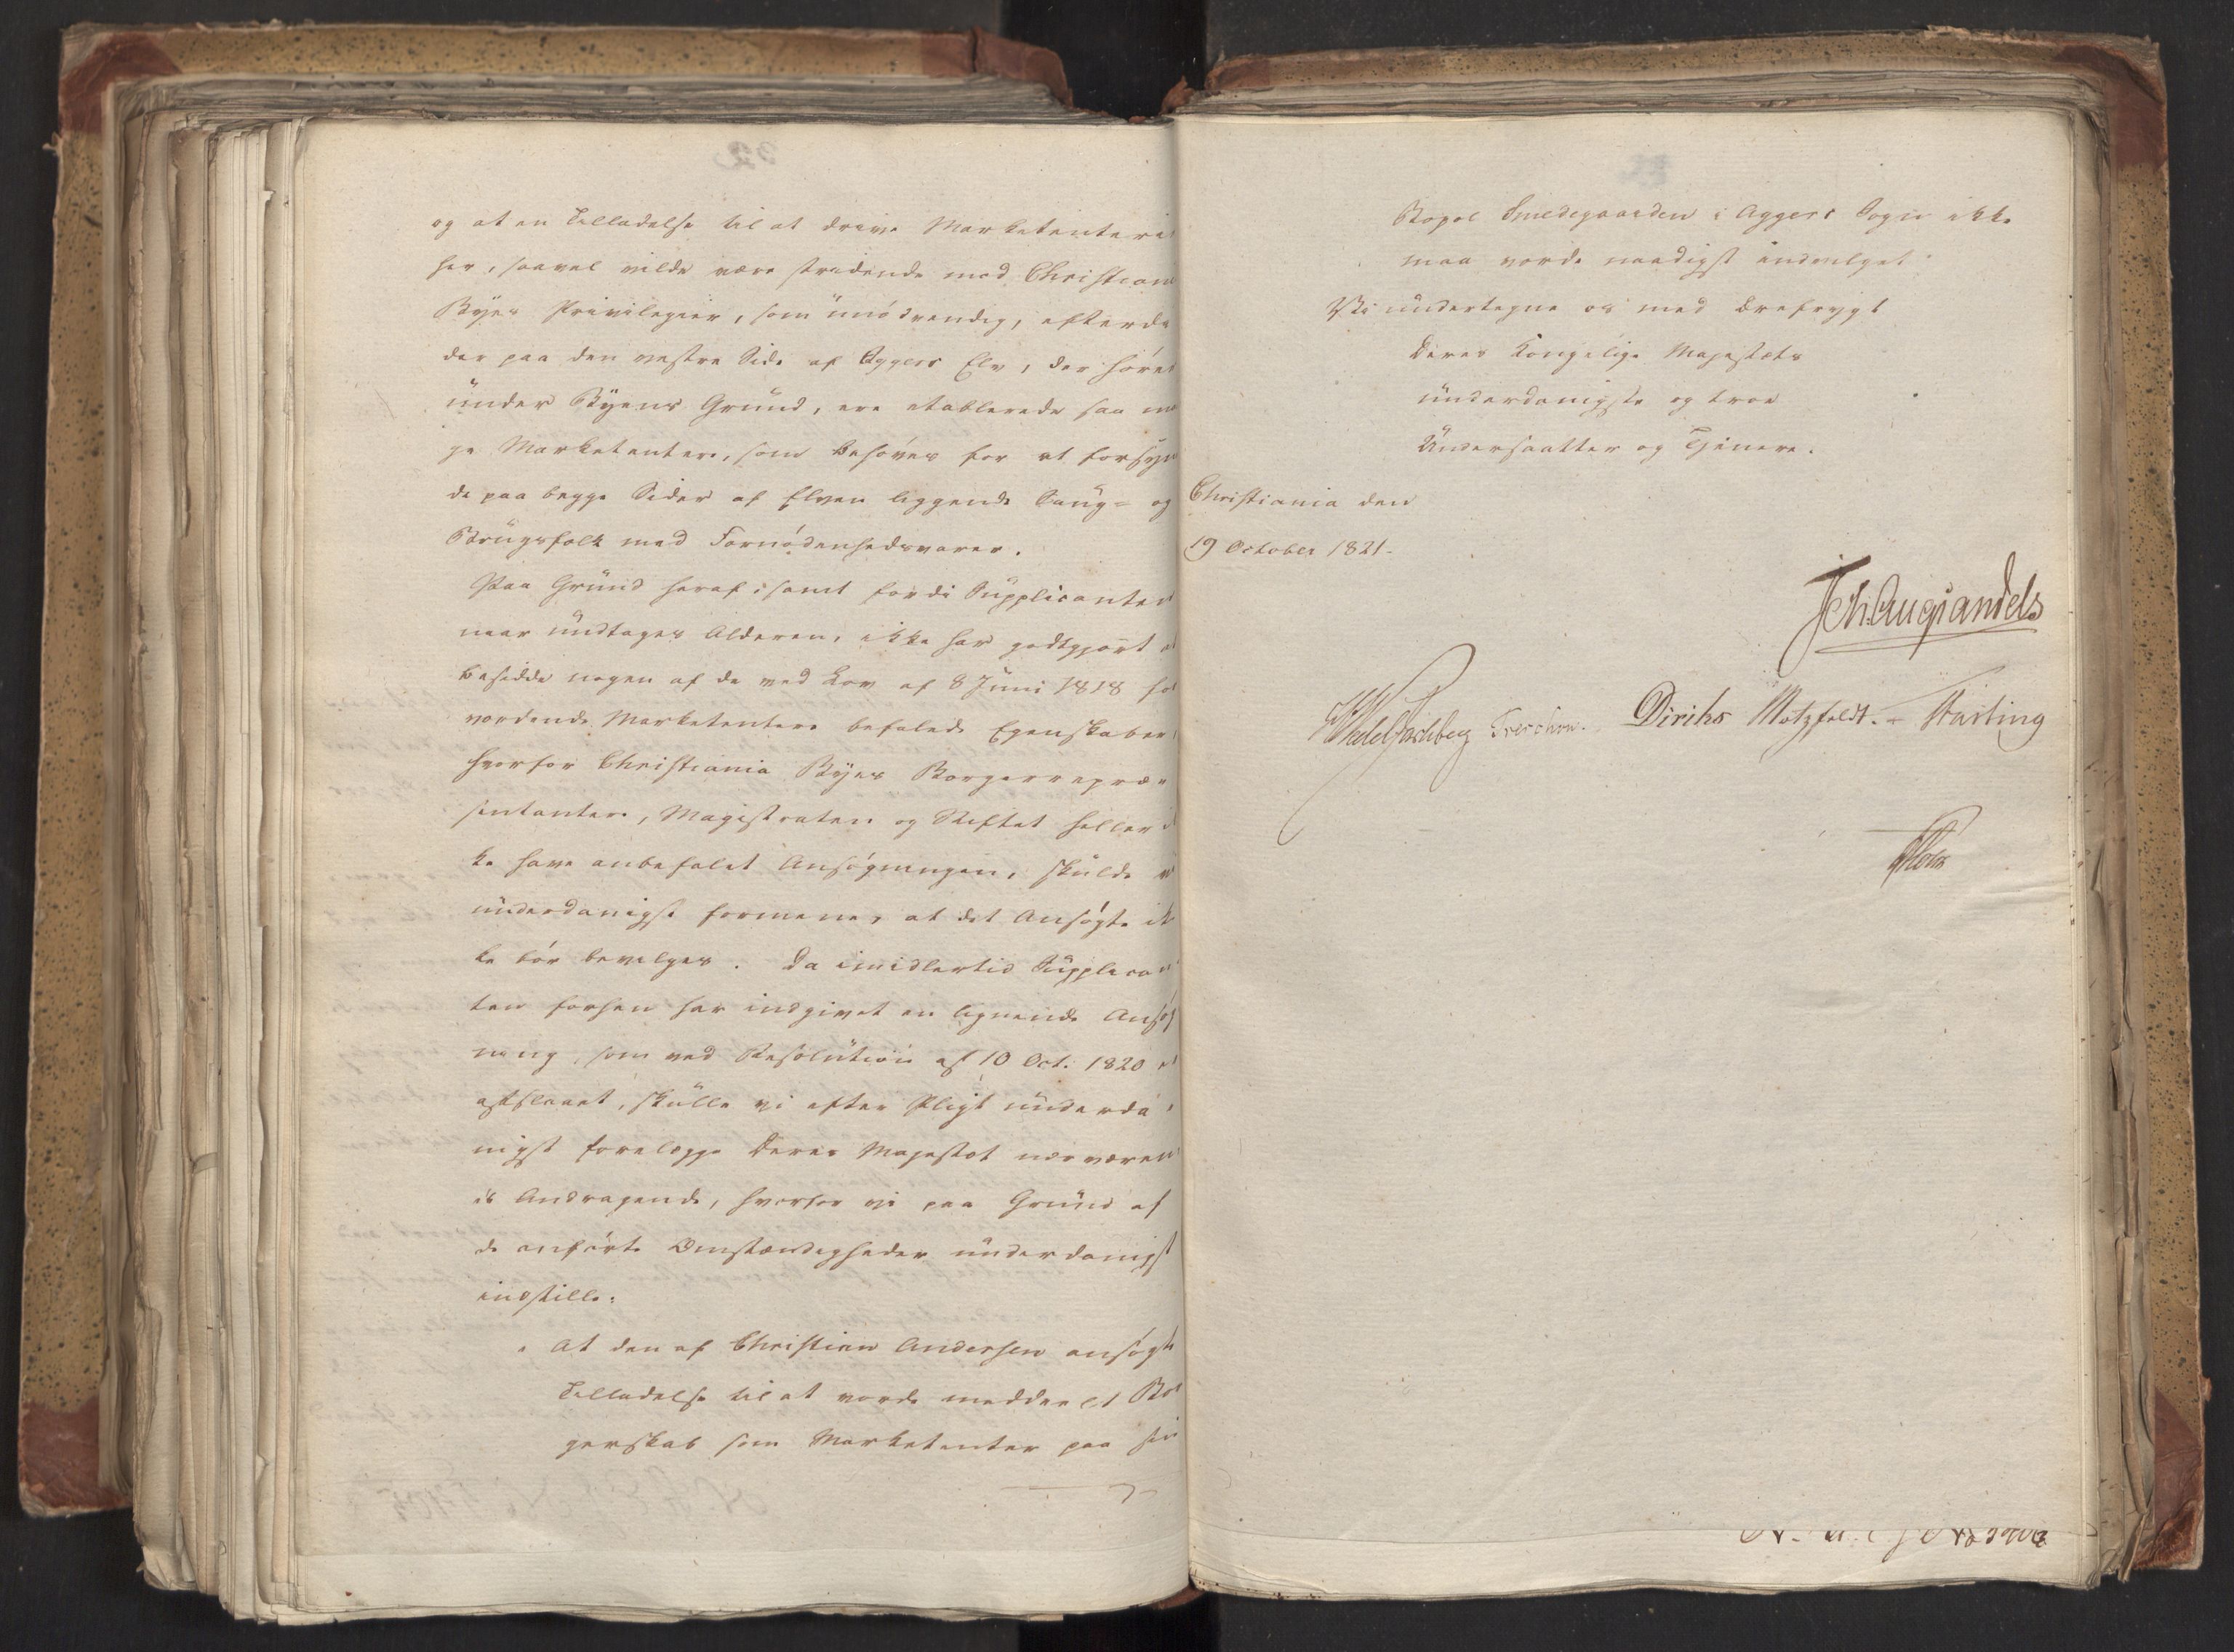 og at en Tilladelse til at drive Marketenteri
her, saavel vilde være stridende mod Christiania
Byes Privilegier, som unödvendig, efterdi
der paa den vestre Side af Aggers Elv, der hörer
under Byens Grund, ere etablerede saa man
ge Marketentere, som behöves for at forsyne
de paa begge Sider af Elven liggende Saug- og
Brugsfolk med Fornödenhedsvarer.
Paa Grund heraf, samt fordi Supplicanten
naar undtages Alderen, ikke har godtgjort at
besidde nogen af de ved Lov af 8 Juni 1818 for
vordende Marketentere befalede Egenskaber,
hvorfor Christiania Byes Borgerrepræ-
sentantere, Magistraten og Stiftet heller ik
ke have anbefalet Ansögningen, skulde vi
underdanigst formene, at det Ansögte ik
ke bör bevilges. Da imidlertid Supplican
ten forhen har indgivet en lignende Ansög
ning, som ved Resolution af 10 Oct. 1820 er
afslaaet, skulle vi efter Pligt underda
nigst forelægge Deres Majestæt nærværen
de Andragende, hvorfor vi paa Grund af
de anförte Omstændigheder underdanigst
indstille:
" At den af Christian Andersen ansögte
Tilladelse til at vorde meddeelt Bor
gerskab som Marketenter paa sin
Bopæl Smedegaarden i Aggers Sogn ikke
maa vorde naadigst indvilget."
Vi undertegne os med Ærefrygt
Deres Kongelige Majestæts
underdanigste og troe
Undersaatter og Tjenere.
Christiania den
19 October 1821.
Joh. Aug. Sandels
HWedelJarlsberg Treschow. Diriks Motzfeldt. Fasting
Holm